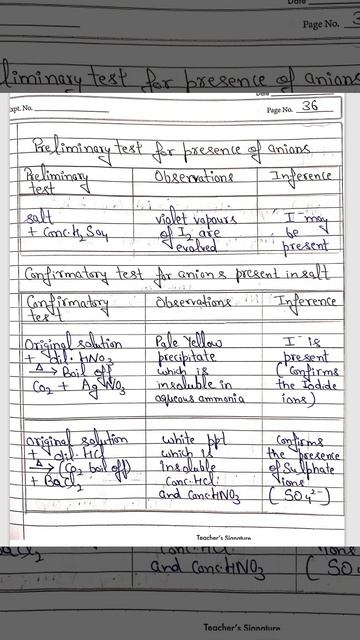 Date
Page No. 3
liminary test for presence of anions
Expt. No.
Page No. 36
Preliminary test for presence of anions
Preliminary test
Observations
Inference
salt
+ Conc. H2SO4
violet vapours
of I2 are
evolved
I⁻ may
be
present
Confirmatory test for anions present in salt
Confirmatory
test
Observations
Inference
Original solution
+ dil. HNO3
Δ→ Boil off
CO2 + AgNO3
Pale Yellow
precipitate
which is
insoluble in
aqueous ammonia
I⁻ is
present
(Confirms
the Iodide
ions)
original solution
+ dil. HCl
Δ→ (CO2 boil off)
+ BaCl2
white ppt
which is
insoluble
Conc. HCl
and conc. HNO3
Confirms
the presence
of Sulphate
ions
(SO4²⁻)
Teacher's Signature
and Conc. HNO3
(SO
Teacher's Signature